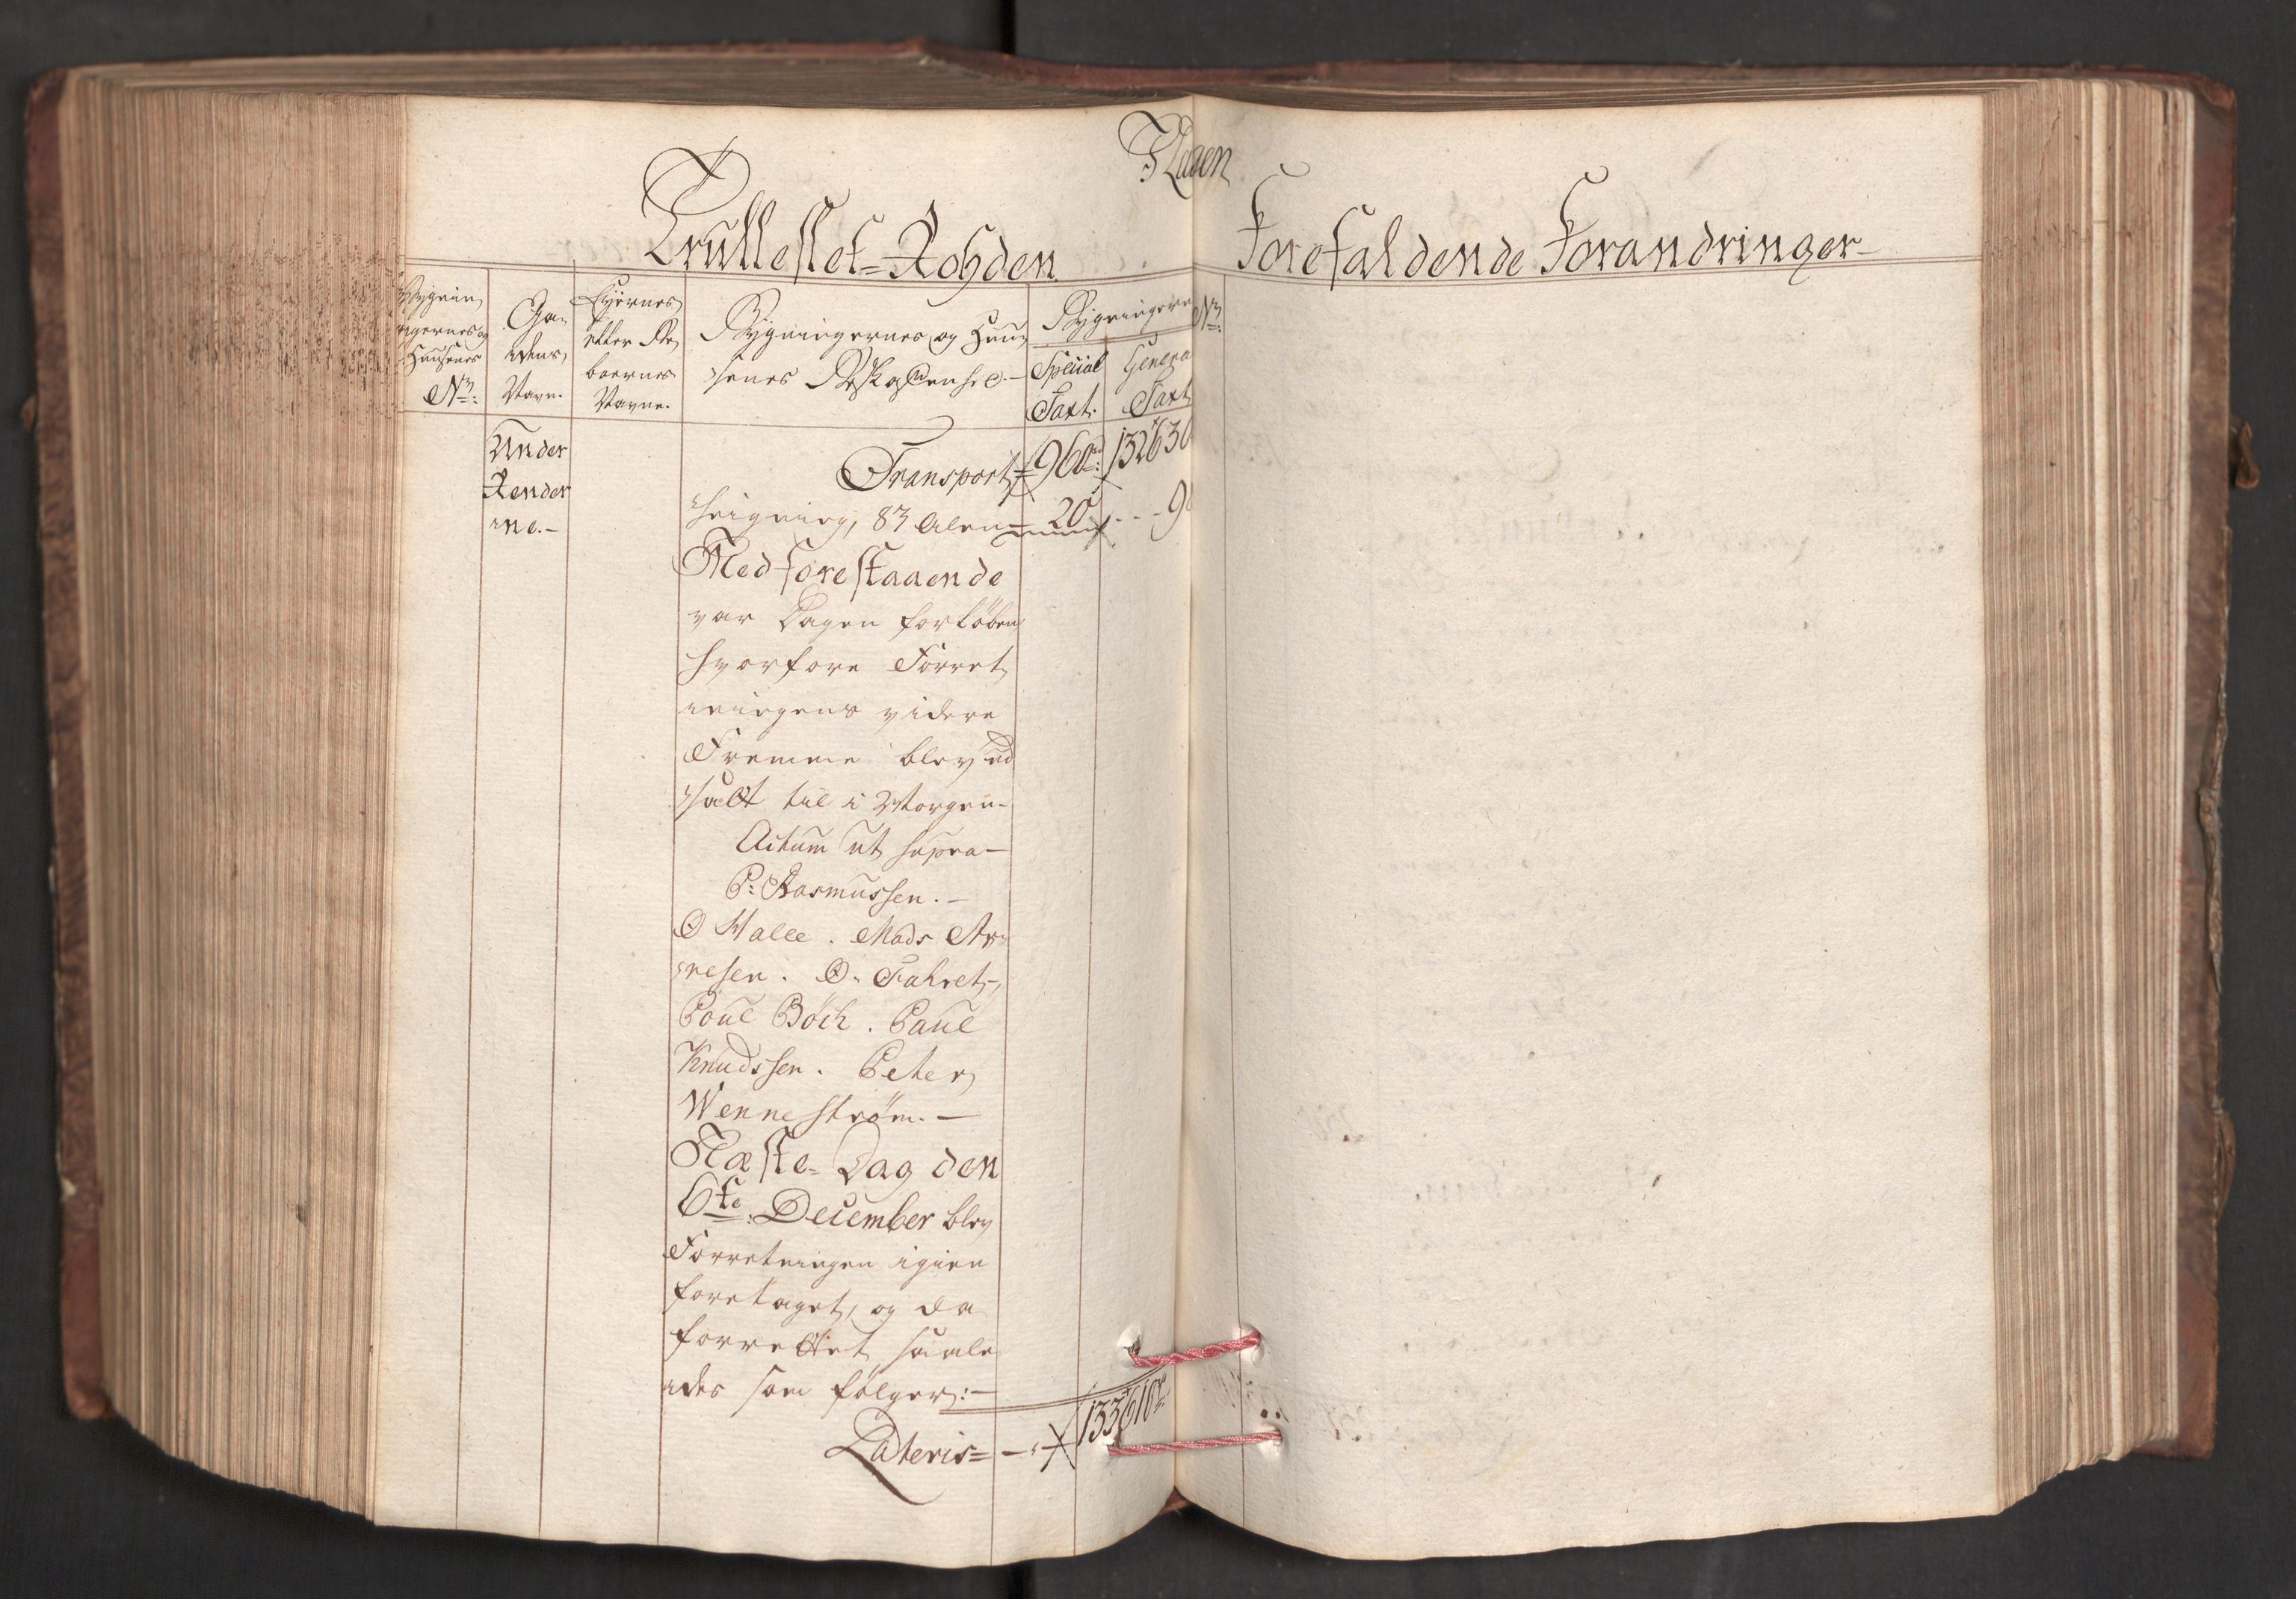 Trulleslet=Rohden
Forefaldende Forandringer
Bygnin
gernes og
Huusenes
No:
Ga-
dens
Navn.
Eyernes
eller Be
boernes
Navne.
Bygningernes og Huu
senes Beskaffenhed.-
Bygningerne
Special
Taxt.
General
Taxt
No:
Under
Render
ne.-
Transport 960 132630
heigning, 83 Alen = 20
Med forestaaende
var Dagen forløben
hvorfore Forret
ningens videre
Fremme blev ud
sadt til i Morgen-
Actum ut supra-
P: Rasmussen.-
O Malle. Mads Ar
nesen. O. Fahret,
Poul Böch. Paul
Knudssen. Peter
Wenneström.-
Næste=Dag den
6te: December blev
Forretningen igien
foretaget, og da
forrettet saale
des som følger:-
Lateris= 133610